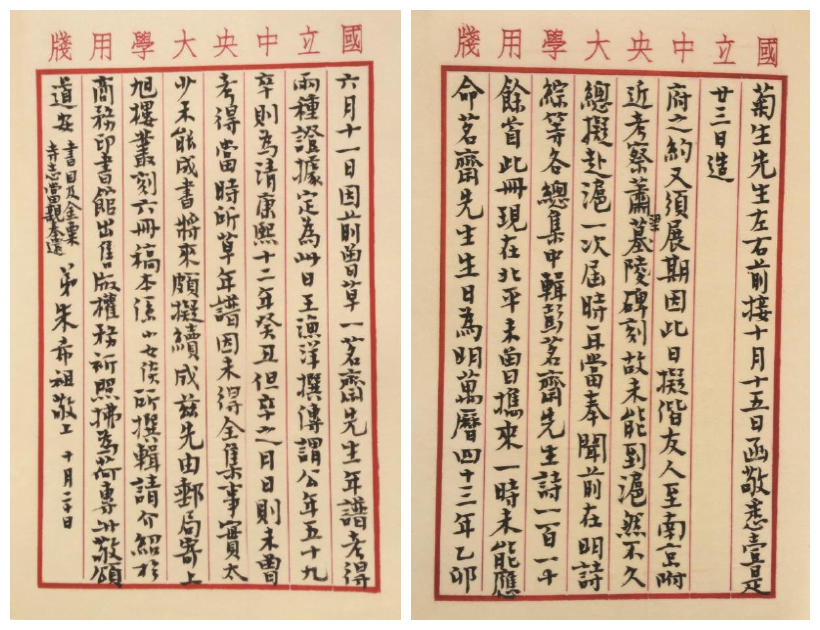 國立中央大學用牋
菊生先生左右前接十月十五日函敬悉壹是
廿三日造
府之約又須展期因此日擬偕友人至南京附
近考察蕭墓陵碑刻故未能到滬然不久
總擬赴滬一次屆時再當奉聞前在明詩
綜等各總集中輯彭茗齋先生詩一百一十
餘首此冊現在北平未曾攜來一時未能應
命茗齋先生生日為明萬曆四十三年乙卯
國立中央大學用牋
六月十一日因前曾草一茗齋先生年譜考得
兩種證據定為此日王漁洋撰傳謂公年五十九
卒則為清康熙十二年癸丑但卒之月日則未曾
考得當時所草年譜因未得全集事實太
少未能成書將來頗擬續成茲先由郵局寄上
旭樓叢刻六冊稿本係小女倓所撰輯請介紹於
商務印書館出售版權務祈照拂為荷專此敬頌
道安 書目及金粟寺志當親奉還 弟朱希祖敬上 十月二十日